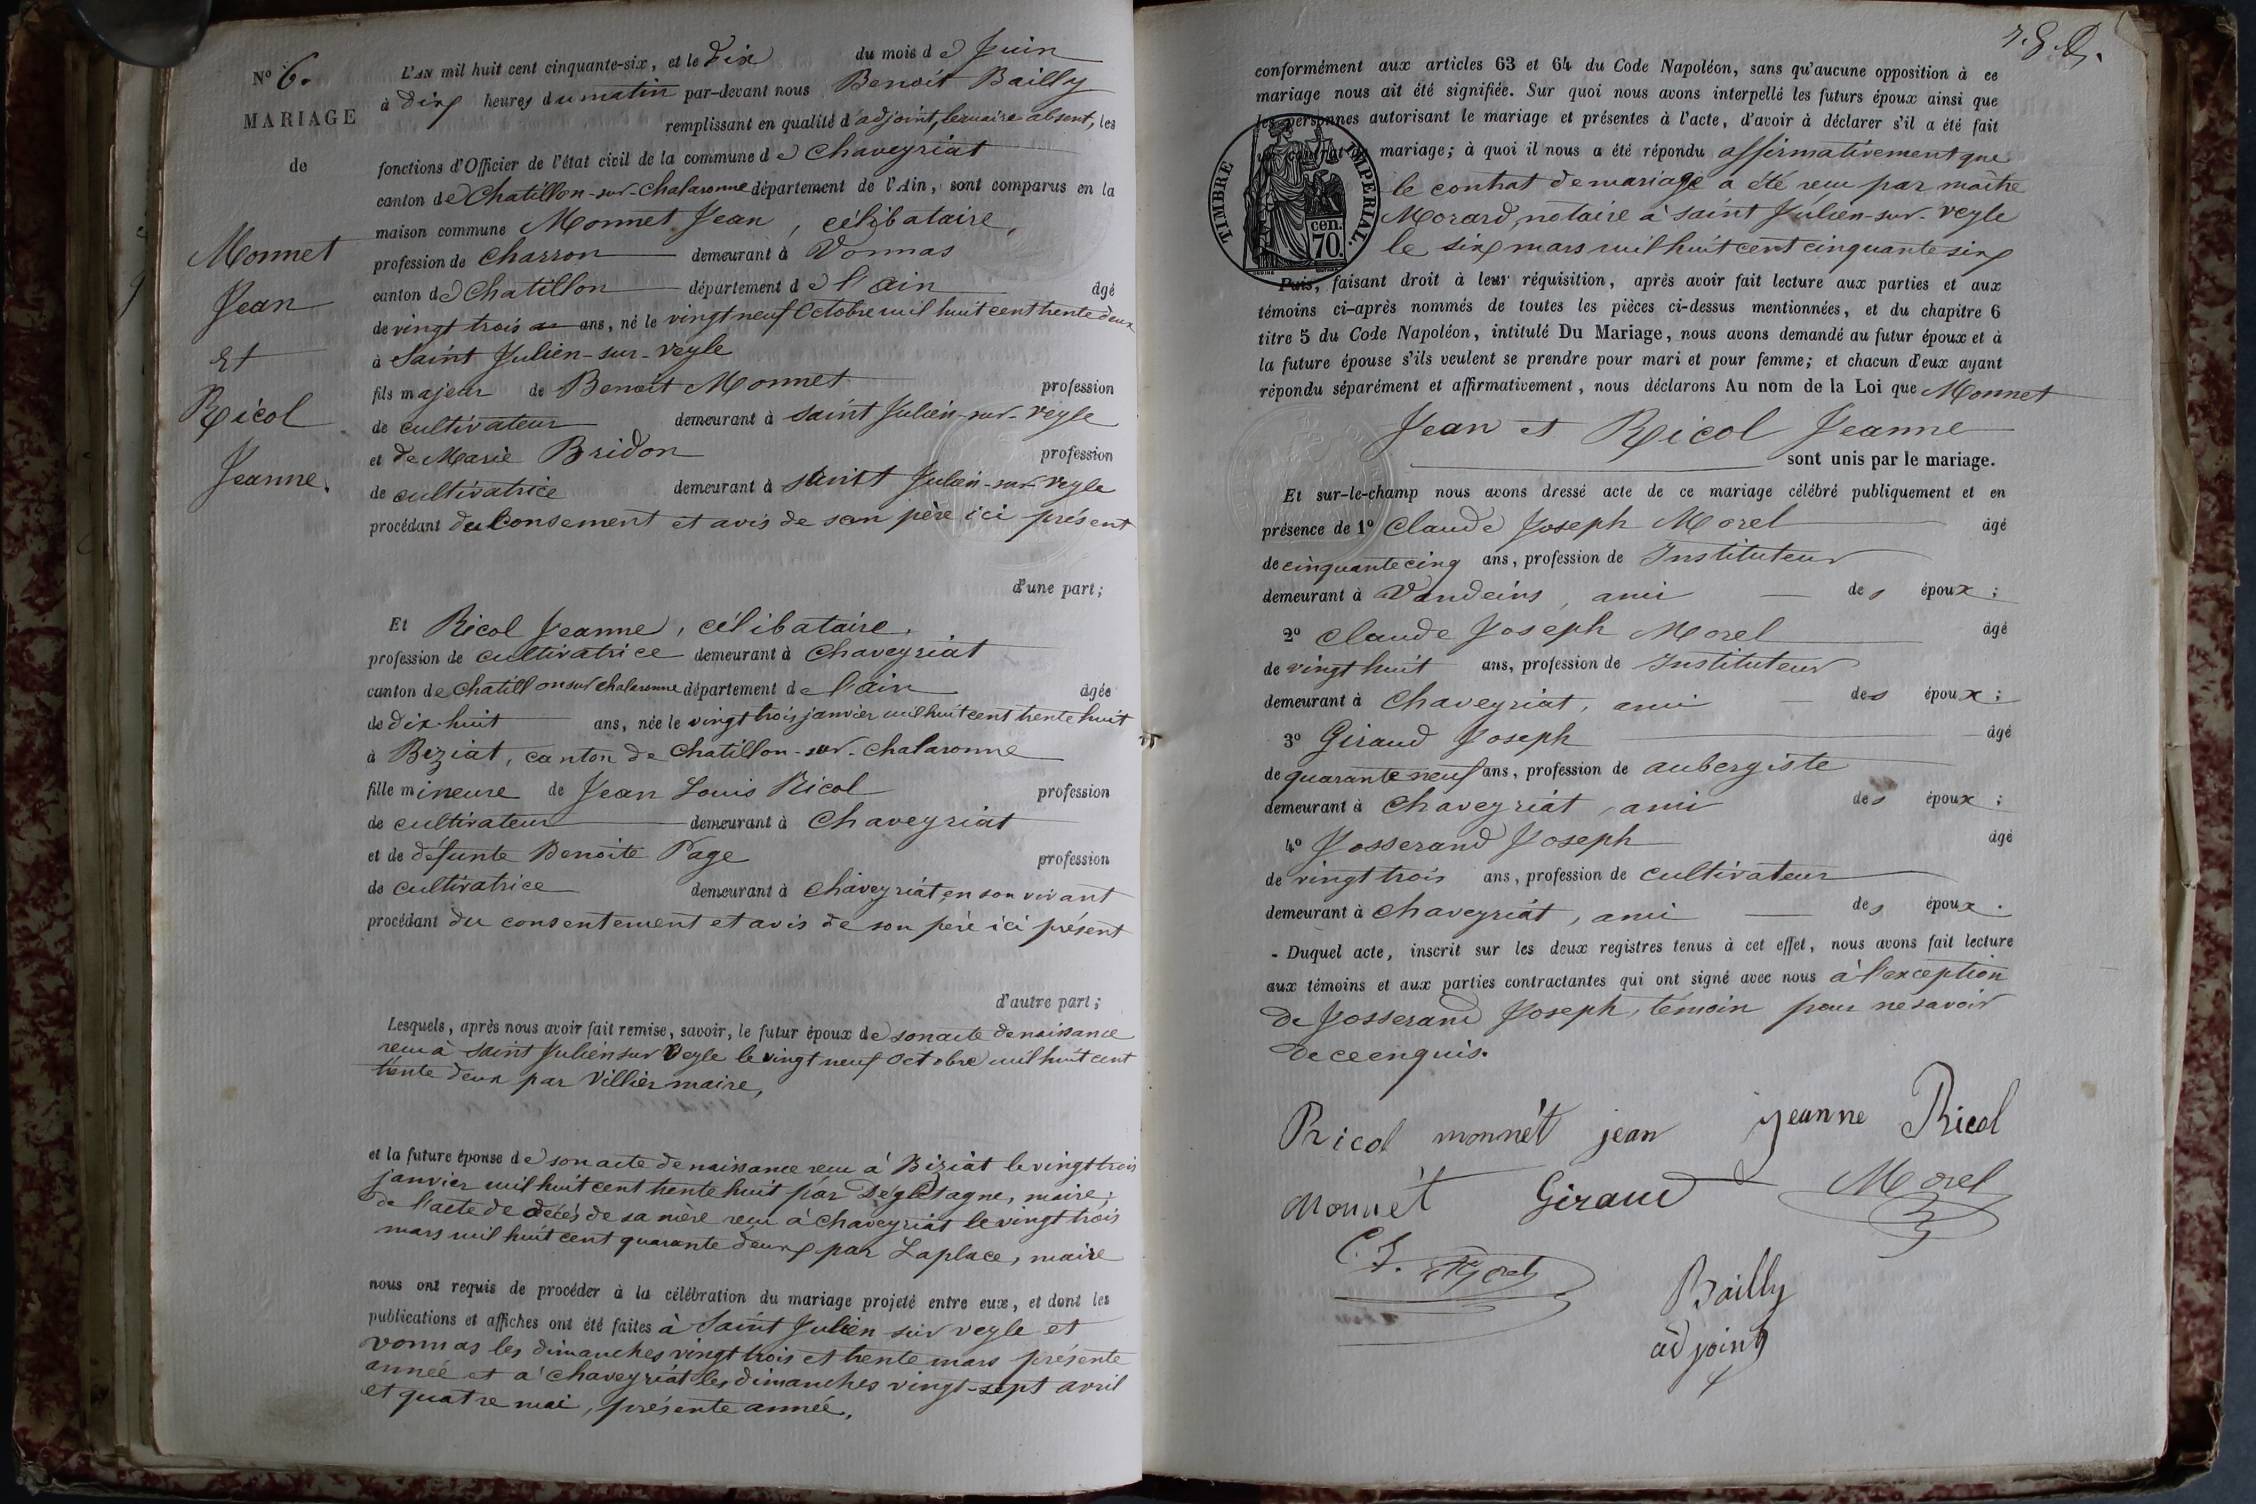 N° 6.
MARIAGE
de
Monnet
Jean
Et
Ricol
Jeanne.
L'AN mil huit cent cinquante-six, et le Dix du mois de Juin
à dix heures du matin par-devant nous Benoît Bailly
remplissant en qualité d'adjoint, le maire absent, les
fonctions d'Officier de l'état civil de la commune de Chaveyriat
canton de Chatillon-sur-Chalaronne département de l'Ain, sont comparus en la
maison commune Monnet Jean, célibataire,
profession de Charron demeurant à Vonnas
canton de Chatillon département de l'ain âgé
de vingt trois ans, né le vingt neuf Octobre mil huit cent trente deux
à Saint Julien-sur-Veyle
fils majeur de Benoit Monnet profession
de cultivateur demeurant à saint Julien-sur-Veyle
et de Marie Bridon profession
de cultivatrice demeurant à saint Julien-sur-Veyle
procédant du Consement et avis de son père ici présent
d'une part;
Et Ricol Jeanne, célibataire,
profession de cultivatrice demeurant à Chaveyriat
canton de chatillon sur chalaronne département de l'ain âgée
de dix-huit ans, née le vingt trois janvier mil huit cent trente huit
à Biziat, canton de Chatillon-sur-Chalaronne
fille mineure de Jean Louis Ricol profession
de cultivateur demeurant à Chaveyriat
et de défunte Benoite Page profession
de cultivatrice demeurant à Chaveyriat, en son vivant
procédant du consentement et avis de son père ici présent
d'autre part;
Lesquels, après nous avoir fait remise, savoir, le futur époux de son acte de naissance
reçu à Saint Julien sur Veyle le vingt neuf Octobre mil huit cent
trente deux par Villier maire,
et la future épouse de son acte de naissance reçu à Biziat le vingt trois
janvier mil huit cent trente huit par Dégletagne, maire;
de l'acte de décès de sa mère reçu à Chaveyriat le vingt trois
mars mil huit cent quarante deux par Laplace, maire
nous ont requis de procéder à la célébration du mariage projeté entre eux, et dont les
publications et affiches ont été faites à Saint Julien sur veyle et
vonnas les dimanches vingt trois et trente mars présente
année et à Chaveyriat les dimanches vingt-sept avril
et quatre mai, présente année.
conformément aux articles 63 et 64 du Code Napoléon, sans qu'aucune opposition à ce
mariage nous ait été signifiée. Sur quoi nous avons interpellé les futurs époux ainsi que
les personnes autorisant le mariage et présentes à l'acte, d'avoir à déclarer s'il a été fait
un contrat de mariage; à quoi il nous a été répondu affirmativement que
TIMBRE IMPERIAL.
cen.
70.
le contrat de mariage a été reçu par maître
Morard, notaire à saint Julien-sur-Veyle
le six mars mil huit cent cinquante six
Puis, faisant droit à leur réquisition, après avoir fait lecture aux parties et aux
témoins ci-après nommés de toutes les pièces ci-dessus mentionnées, et du chapitre 6
titre 5 du Code Napoléon, intitulé Du Mariage, nous avons demandé au futur époux et à
la future épouse s'ils veulent se prendre pour mari et pour femme; et chacun d'eux ayant
répondu séparément et affirmativement, nous déclarons Au nom de la Loi que Monnet
Jean et Ricol Jeanne
sont unis par le mariage.
Et sur-le-champ nous avons dressé acte de ce mariage célébré publiquement et en
présence de 1° Claude Joseph Morel âgé
de cinquante cinq ans, profession de Instituteur
demeurant à Vandeins, ami des époux;
2° Claude Joseph Morel âgé
de vingt huit ans, profession de Instituteur
demeurant à Chaveyriat, ami des époux;
3° Giraud Joseph âgé
de quarante neuf ans, profession de aubergiste
demeurant à Chaveyriat, ami des époux;
4° Josserand Joseph âgé
de vingt trois ans, profession de cultivateur
demeurant à Chaveyriat, ami des époux.
- Duquel acte, inscrit sur les deux registres tenus à cet effet, nous avons fait lecture
aux témoins et aux parties contractantes qui ont signé avec nous à l'exception
de Josserand Joseph, témoin pour ne savoir
de ce enquis.
Ricol monnét jean jeanne Ricol
Monnét Giraud Morel
C. J. Morel
Bailly
adjoint